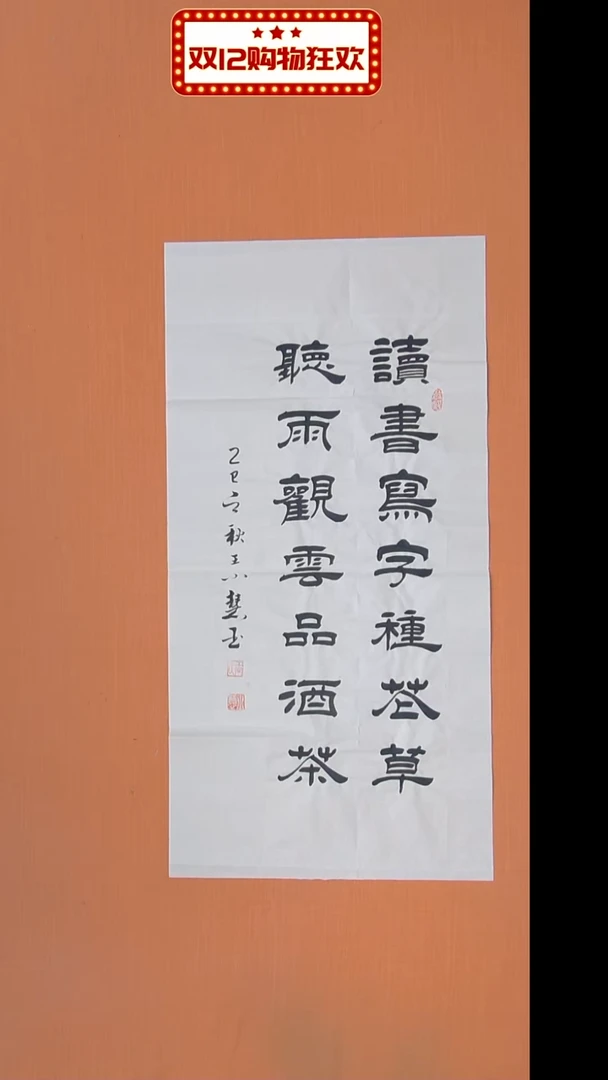 双12购物狂欢
讀書寫字種花草
聽雨觀雲品酒茶
乙巳之秋王小慧書